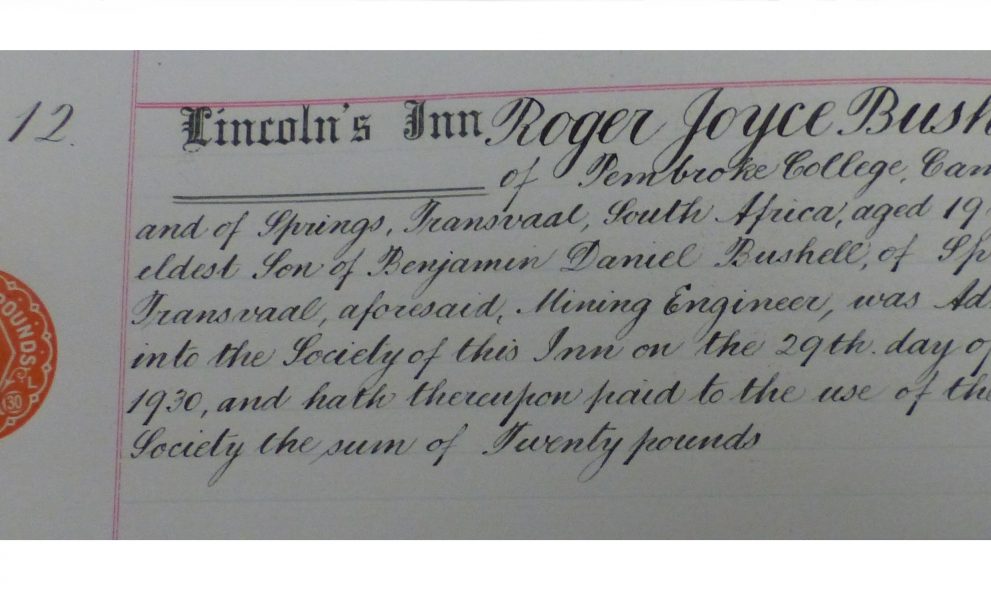 12.
Lincoln's Inn Roger Joyce Bush
of Pembroke College, Cam
and of Springs, Transvaal, South Africa, aged 19
eldest Son of Benjamin Daniel Bushell, of Sp
Transvaal, aforesaid, Mining Engineer, was Ad
into the Society of this Inn on the 29th. day of
1930, and hath thereupon paid to the use of the
Society the sum of Twenty pounds
POUNDS
30